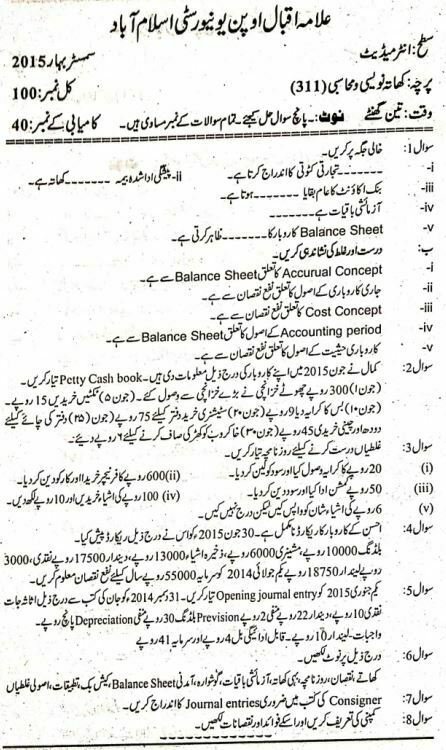 علامہ اقبال اوپن یونیورسٹی اسلام آباد
سطح: انٹرمیڈیٹ سمسٹر بہار 2015
پرچہ: کھاتہ نویسی و محاسبی (311) کل نمبر: 100
وقت: تین گھنٹے نوٹ:۔ پانچ سوال حل کیجئے۔ تمام سوالات کے نمبر مساوی ہیں۔ کامیابی کے نمبر: 40
سوال 1: خالی جگہ پر کریں۔
i- ------- تجارتی کٹوتی کا اندراج کرنا ہے۔ ii- پیشگی ادا شدہ بیمہ ------- کھاتہ ہے۔
iii- بنک اکاؤنٹ کا عام بقایا ------- ہوتا ہے۔
iv- آزمائشی باقیات ہے -------
v- Balance Sheet کاروبار کا ------- ظاہر کرتی ہے۔
ب: درست اور غلط کی نشاندہی کریں۔
i- Accurual Concept کا تعلق Balance Sheet سے ہے۔
ii- جاری کاروباری کے اصول کا تعلق نفع نقصان سے ہے۔
iii- Cost Concept کا تعلق نفع نقصان سے ہے۔
iv- Accounting period کے اصول کا تعلق Balance Sheet سے ہے۔
v- کاروباری حیثیت کے اصول کا تعلق نفع نقصان سے ہے۔
سوال 2: کمال نے جون 2015 میں اپنے کاروبار کی درج ذیل معلومات دی ہیں۔ Petty Cash book تیار کریں۔
(جون 1) 300 روپے چھوٹے خزانچی نے بڑے خزانچی سے وصول کئے۔ (جون ۵) ٹکٹیں خریدیں 15 روپے۔
(جون ۱۰) بس کا کرایہ دیا 9 روپے (جون ۲۰) سٹیشنری خرید دفتر کیلئے 75 روپے (جون ۲۵) دفتر کی چائے کیلئے
دودھ اور چینی خریدی 45 روپے (جون ۳۰) خاکروب کو کھڑکی صاف کرنے کیلئے ۶ روپے دیئے۔
سوال 3: غلطیاں درست کرنے کیلئے روزنامچہ تیار کریں۔
(i) 20 روپے کا کرایہ وصول کیا اور سود کو لین کر دیا۔ (ii) 600 روپے کا فرنیچر خریدا اور کار کو دین کر دیا۔
(iii) 50 روپے کمشن ادا کیا اور سود دین کر دیا۔ (iv) 100 روپے کی اشیاء خریدیں اور 10 روپے لکھ دیں۔
(v) 6 روپے کی اشیاء شان کو واپس کیں لیکن درج نہیں کیں۔
سوال 4: احسن کے کاروبار کا ریکارڈ نامکمل ہے۔ 30 جون 2015ء کو اس نے درج ذیل ریکارڈ پیش کیا۔
بلڈنگ 10000 روپے، مشینری 6000 روپے، ذخیرہ اشیاء 13000 روپے، دیندار 17500 روپے نقدی، 3000
روپے لیندار 18750 روپے یکم جولائی 2014 کو سرمایہ 55000 روپے سال کیلئے نفع نقصان معلوم کریں۔
سوال 5: یکم جنوری 2015 کو Opening journal entry تیار کریں۔ 31 دسمبر 2014 کو جان کی کتب سے درج ذیل اثاثہ جات
نقدی 10 روپے، دیندار 22 روپے منفی 2 روپے Prevision بلڈنگ 30 روپے منفی Depreciation پانچ روپے۔
واجبات۔ لیندار 10 روپے۔ قابل ادائیگی بل 4 روپے اور سرمایہ 41 روپے
سوال 6: درج ذیل پر نوٹ لکھیں۔
کھاتے، نقصان، روزنامچہ، بہی کھاتہ، آزمائشی باقیات، گوشوارہ، آمدنی Balance Sheet، کیش بک، تطبیقات، اصولی غلطیاں
سوال 7: Consigner کی کتب میں ضروری Journal entries کا اندراج کریں۔
سوال 8: کمپنی کی تعریف کریں اور اسکے فوائد اور نقصانات لکھیں۔